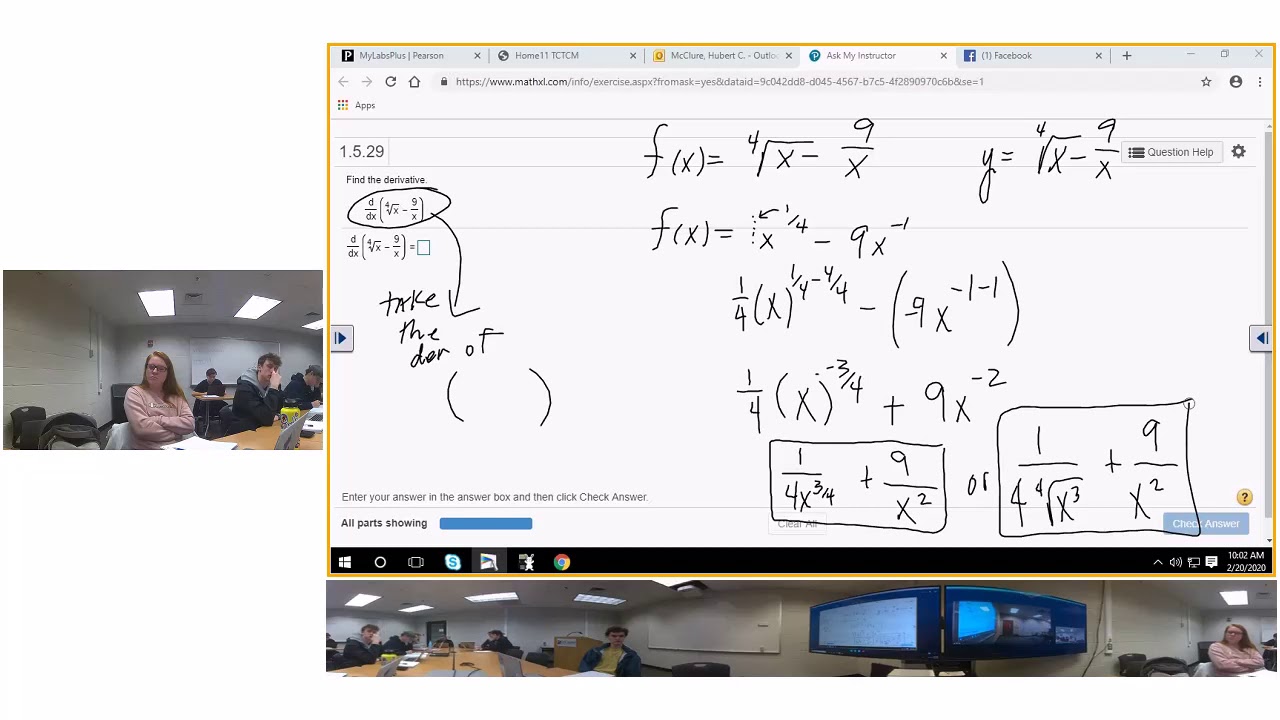 MyLabsPlus | Pearson
Home11 TCTCM
McClure, Hubert C. - Outloo
Ask My Instructor
(1) Facebook
https://www.mathxl.com/info/exercise.aspx?fromask=yes&dataid=9c042dd8-d045-4567-b7c5-4f2890970c6b&se=1
Apps
1.5.29
Question Help
Find the derivative.
d/dx (∜x − 9/x)
d/dx (∜x − 9/x) =
take
the
der of
( )
f(x) = ∜x − 9/x
y = ∜x − 9/x
f(x) = x^1/4 − 9x^-1
1/4 (x)^1/4-4/4 − (-9x^-1-1)
1/4 (x)^-3/4 + 9x^-2
1/4x^3/4 + 9/x^2 or 1/4∜x^3 + 9/x^2
Enter your answer in the answer box and then click Check Answer.
All parts showing
Clear All
Check Answer
?
10:02 AM
2/20/2020